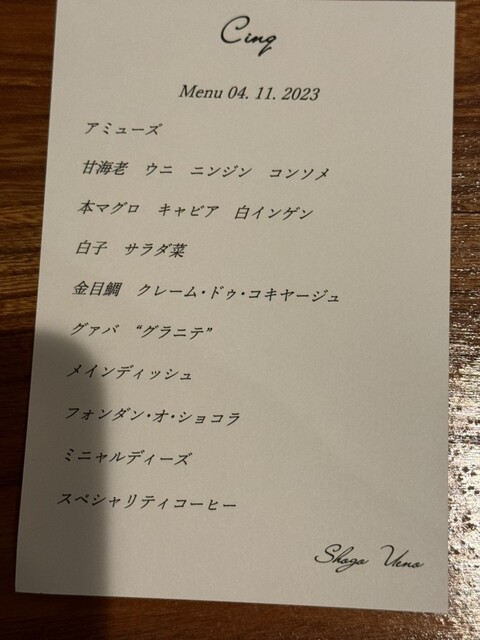 Cinq
Menu 04. 11. 2023
アミューズ
甘海老　ウニ　ニンジン　コンソメ
本マグロ　キャビア　白インゲン
白子　サラダ菜
金目鯛　クレーム・ドゥ・コキヤージュ
グァバ　“グラニテ”
メインディッシュ
フォンダン・オ・ショコラ
ミニャルディーズ
スペシャリティコーヒー
Shogo Ueno